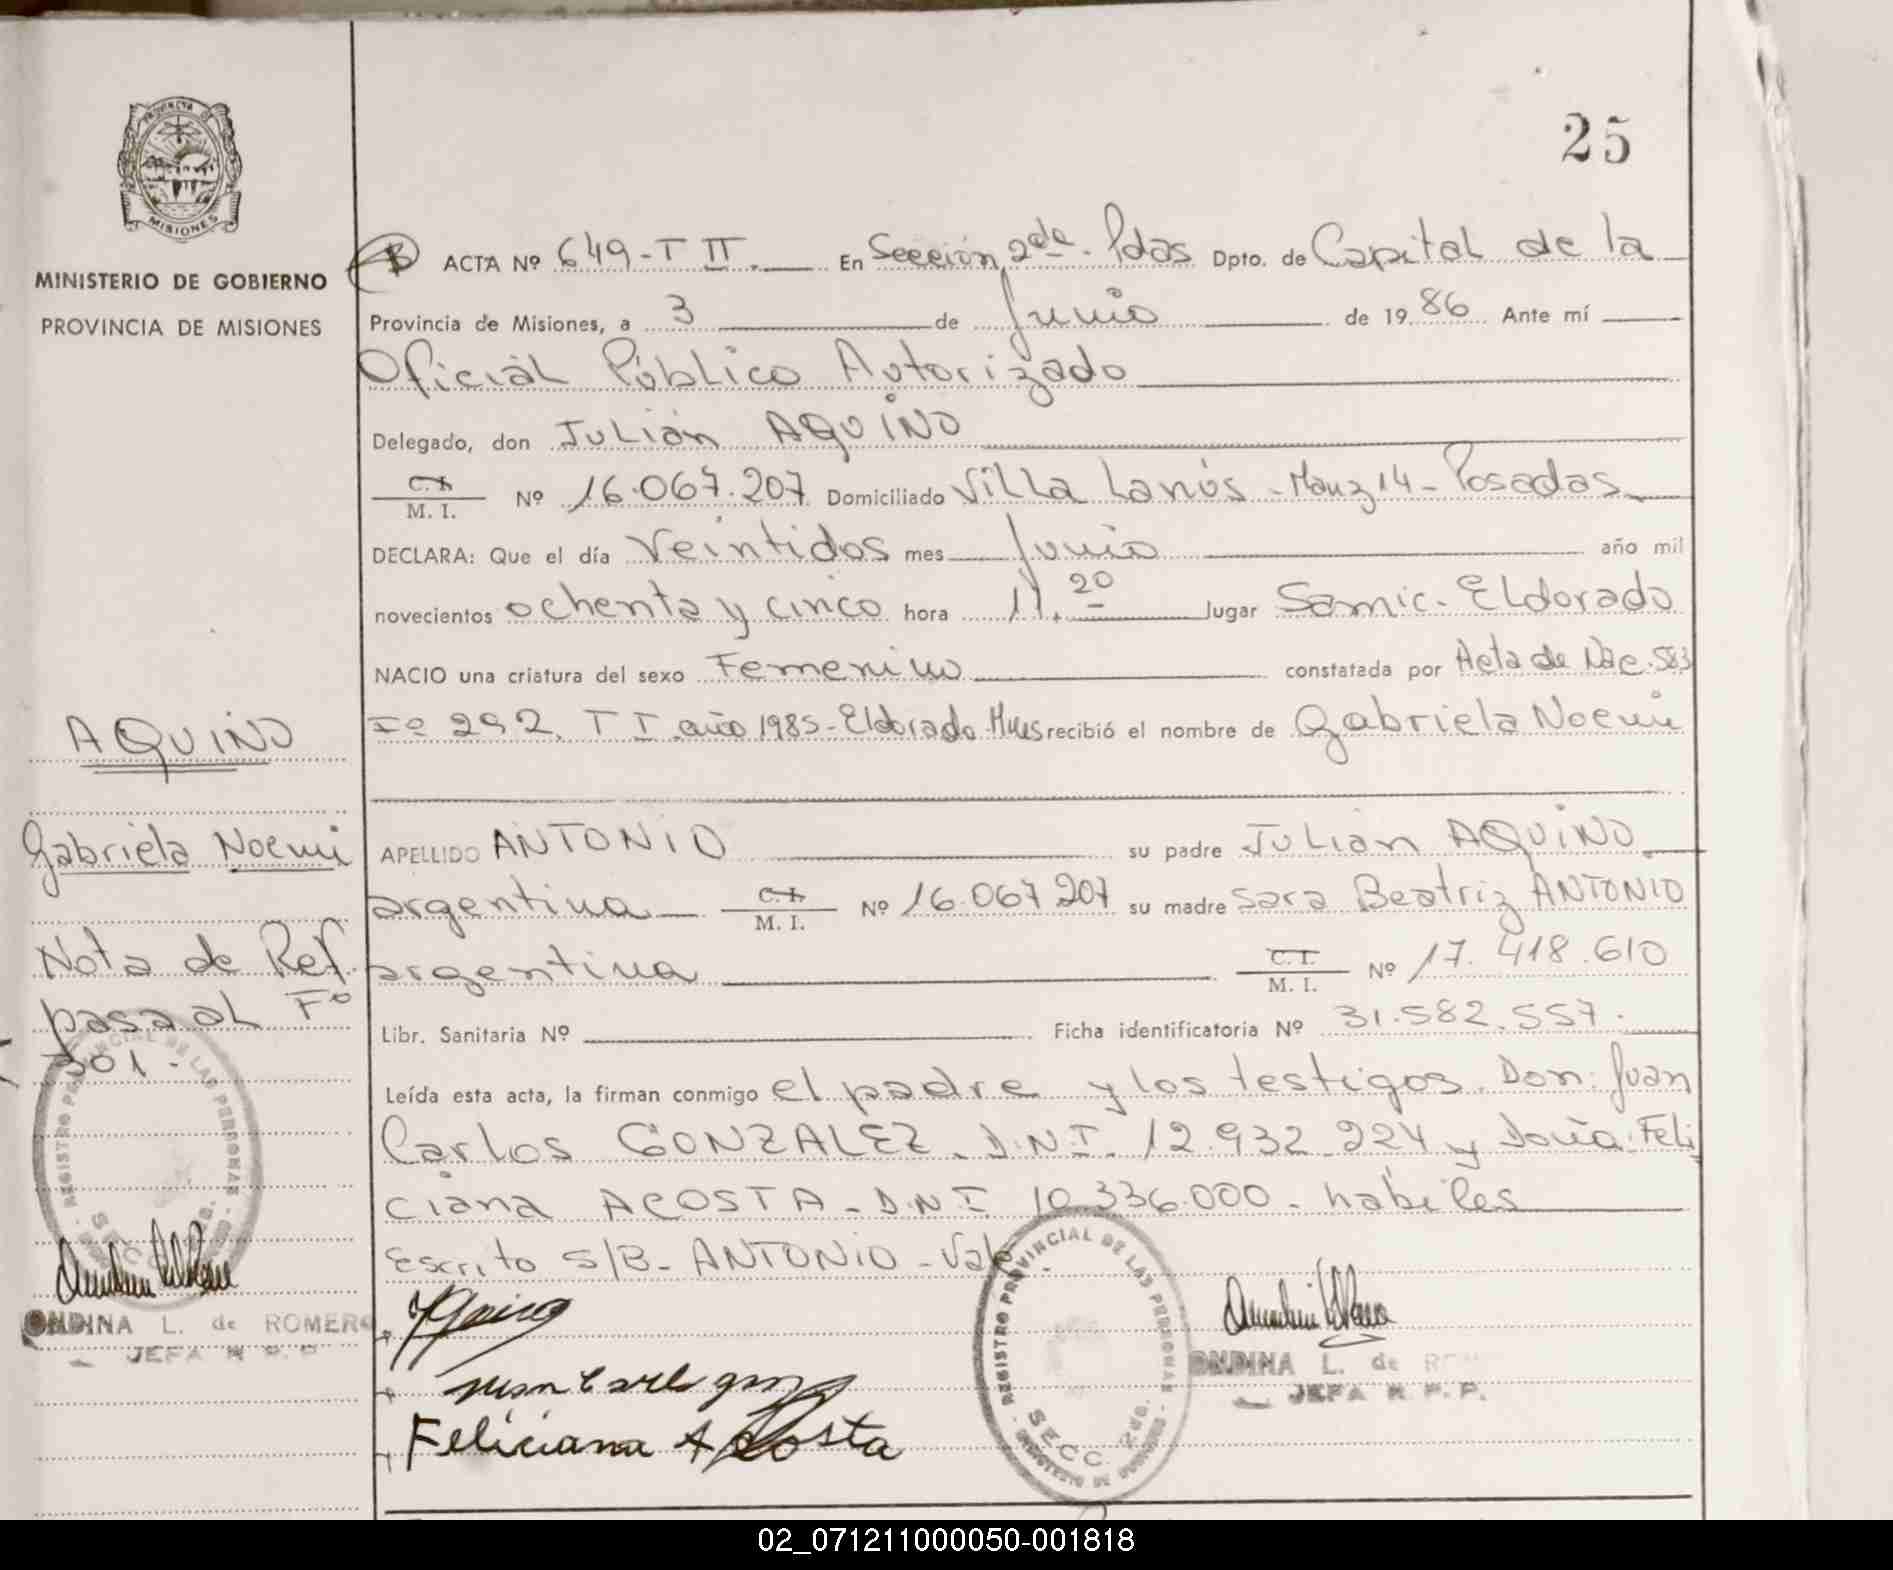 25
PROVINCIA DE
MISIONES
MINISTERIO DE GOBIERNO
PROVINCIA DE MISIONES
ACTA Nº 649-T II. En Sección 2da. Pdas Dpto. de Capital de la
Provincia de Misiones, a 3 de Junio de 1986 Ante mí
Oficial Público Autorizado
Delegado, don Julián AQUINO
C.I.
M. I. Nº 16.067.207 Domiciliado Villa Lanús - Manz 14 - Posadas
DECLARA: Que el día Veintidos mes Junio año mil
novecientos ochenta y cinco hora 11.20 lugar Samic. Eldorado
NACIO una criatura del sexo Femenino constatada por Acta de Nac. 583
Fº 292. T I año 1985 - Eldorado Mnes recibió el nombre de Gabriela Noemi
APELLIDO ANTONIO su padre Julian AQUINO
argentina C.I.
M. I. Nº 16.067.207 su madre Sara Beatriz ANTONIO
argentina C.I.
M. I. Nº 17.418.610
Libr. Sanitaria Nº Ficha identificatoria Nº 31.582.557.
Leída esta acta, la firman conmigo el padre y los testigos. Don: Juan
Carlos GONZALEZ. D.N.I. 12.932.224 y Doña: Feli
ciana ACOSTA - D.N.I 10.336.000 - habiles
Escrito S/B - ANTONIO - Vale.
Feliciana Acosta
REGISTRO PROVINCIAL DE LAS PERSONAS
SECC. 2da.
MINISTERIO DE GOBIERNO
ONDINA L. de
JEFA R P. P.
AQUINO
Gabriela Noemi
Nota de Ref.
pasa al Fº
301.
REGISTRO PROVINCIAL DE LAS PERSONAS
ONDINA L. de ROMERO
JEFA R P. P
02_071211000050-001818